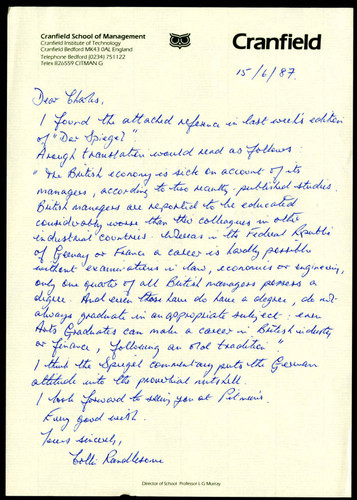 Cranfield School of Management
Cranfield Institute of Technology
Cranfield Bedford MK43 0AL England
Telephone Bedford (0234) 751122
Telex 826559 CITMAN G
Cranfield
15/6/87.
Dear Charles,
I found the attached reference in last week's edition
of "Der Spiegel"
A rough translation would read as follows:
"The British economy is sick on account of its
managers, according to two recently-published studies.
British managers are reported to be educated
considerably worse than their colleagues in other
industrial countries. Whereas in the Federal Republic
of Germany or France a career is hardly possible
without examinations in law, economics or engineering,
only one quarter of all British managers possess a
degree. And even those who do have a degree, do not
always graduate in an appropriate subject: even
Arts Graduates can make a career in British industry
or finance, following an old tradition".
I think the Spiegel commentary puts the German
attitude into the proverbial nutshell.
I look forward to seeing you at Pitman's.
Every good wish.
Yours sincerely,
Collin Randlesome
Director of School Professor L G Murray